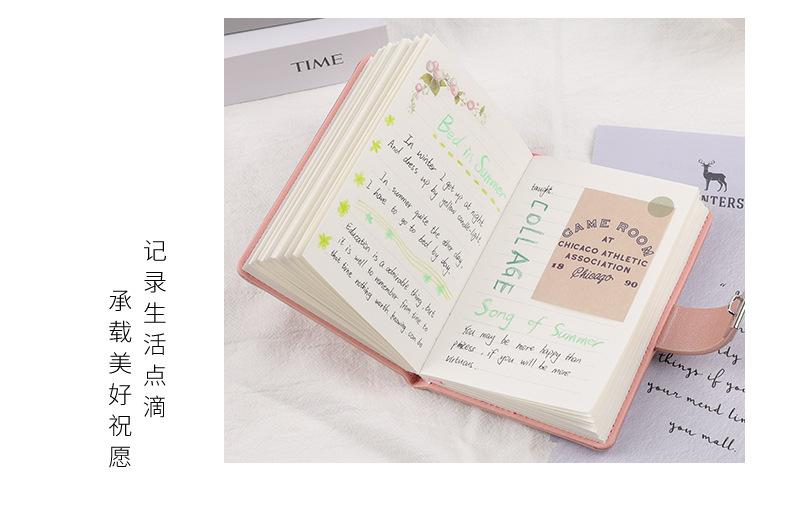 记录生活点滴
承载美好祝愿
TIME
Bed in Summer
In winter I get up at night
And dress up by yellow candle-light
In summer quite the other day,
I have to go to bed by day.
Education is a admirable thing, but
it is well to remember from time to
that time nothing worth knowing can be
taught.
COLLAGE
GAME ROOM
AT
CHICAGO ATHLETIC
ASSOCIATION
18 Chicago 90
Song of Summer
You may be more happy than
princess, if you will be more
virtuous.
NTERS
things if you
your mend lin
you mall.